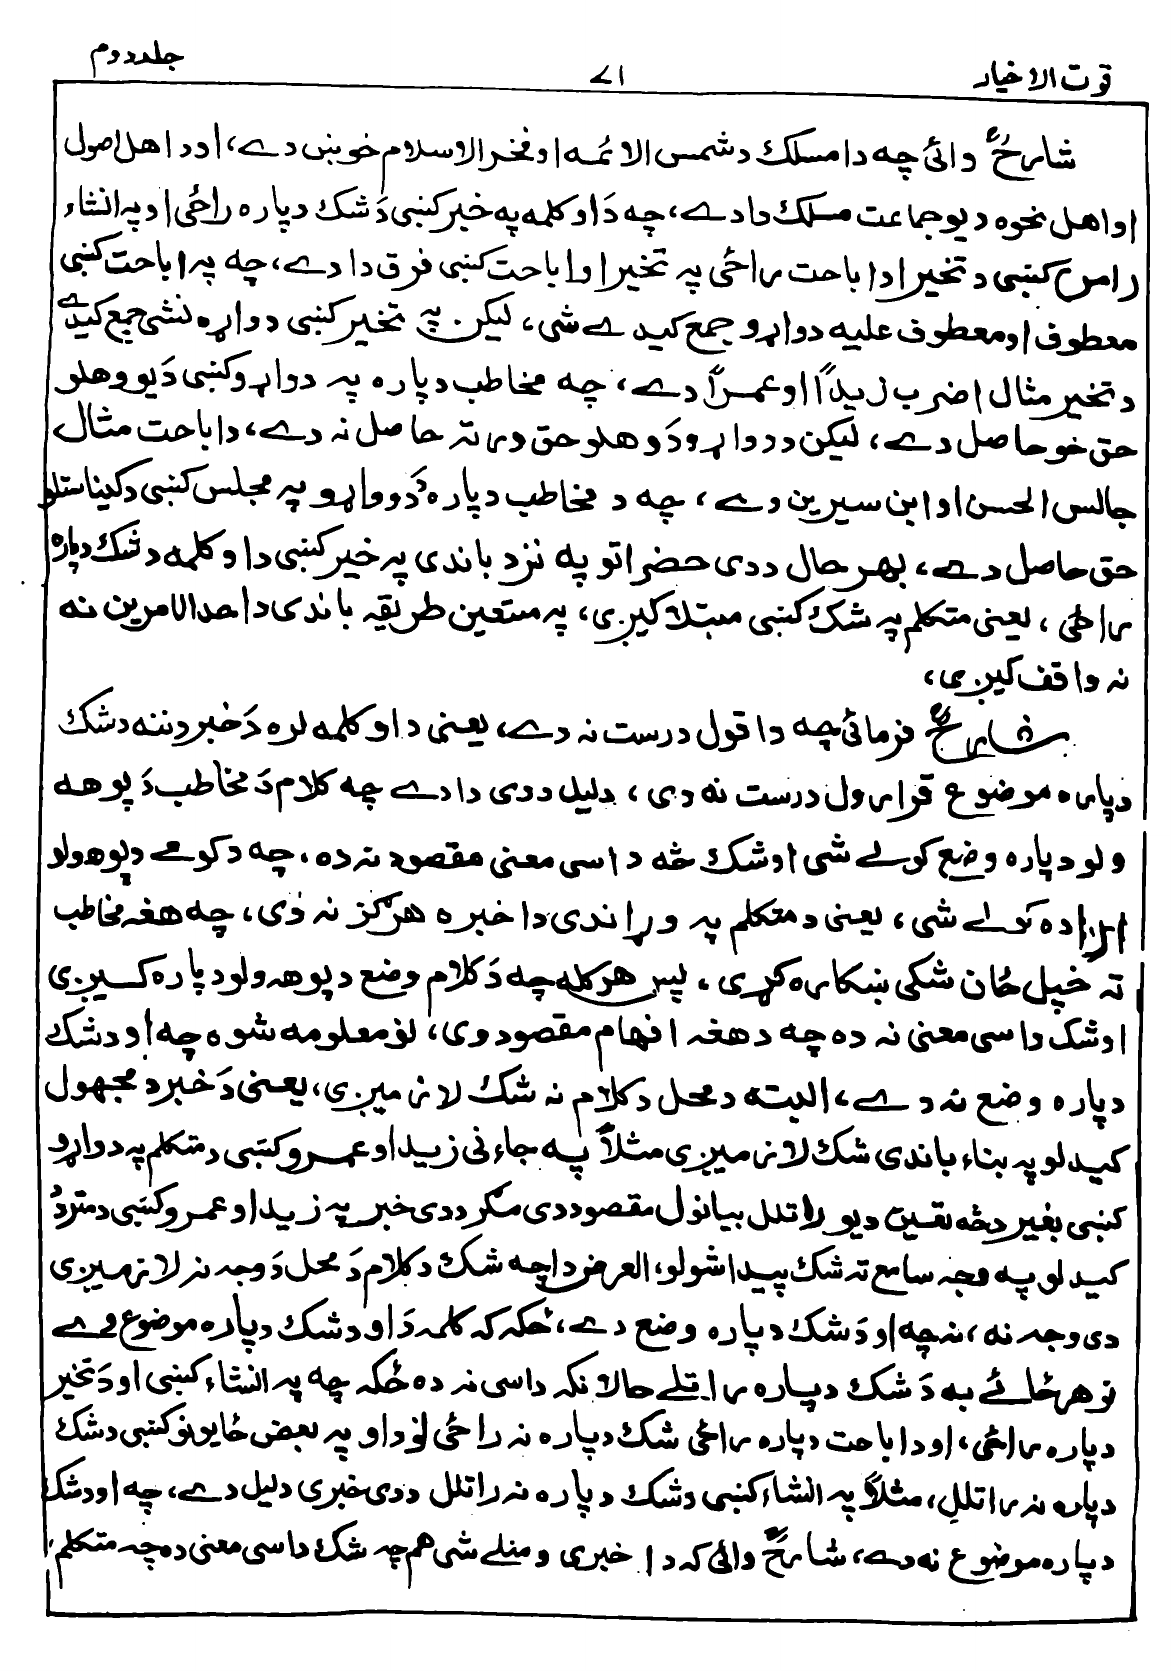 قوت الاخیار ۷۱ جلد دوم
شارحؒ وائی چه دا مسلک د شمس الائمه او فخر الاسلام خوښ دے، او د اهل اصول
او اهل نحوه د یو جماعت مسلک دا دے، چه دَ او کلمه په خبر کښی دَ شک دپاره راځی او په انشاء
(امر) کښی د تخیر او اباحت راځی په تخیر او اباحت کښی فرق دا دے، چه په اباحت کښی
معطوف او معطوف علیه دواړو جمع کیدے شی، لیکن په تخیر کښی دواړه نشی جمع کیدے
د تخیر مثال اضرب زیداً او عمراً دے، چه مخاطب دپاره په دواړو کښی دَ یو وهلو
حق خو حاصل دے، لیکن د دواړو دَ وهلو حق ورته حاصل نه دے، د اباحت مثال
جالس الحسن او ابن سیرین دے، چه د مخاطب دپاره دَ دوواړو په مجلس کښی د کیناستلو
حق حاصل دے، بهر حال ددی حضراتو په نزد باندی په خبر کښی د او کلمه د شک دپاره
راځی، یعنی متکلم په شک کښی مبتلا کیږی، په متعین طریقه باندی د احد الامرین نه
نه واقف کیږی،
شارحؒ فرمائی چه دا قول درست نه دے، یعنی د او کلمه لره دَ خبر دننه د شک
دپاره موضوع قرارول درست نه دی، دلیل ددی دا دے چه کلام دَ مخاطب دَ پوهه
ولو دپاره وضع کولے شی او شک څه داسی معنی مقصود نه ده، چه د کومے د پوهولو
اراده کولے شی، یعنی د متکلم په وړاندی دا خبره هرګز نه دی، چه هغه مخاطب
ته خپل ځان شکی ښکاره کړی، پس هرکله چه دَ کلام وضع د پوهه ولو دپاره کیږی
او شک داسی معنی نه ده چه د هغه افهام مقصود وی، نؤ معلومه شوه چه او د شک
دپاره وضع نه دے، البته د محل د کلام نه شک لازمیږی، یعنی دَ خبر دَ مجهول
کیدلو په بناء باندی شک لازمیږی مثلاً په جاءنی زید او عمرو کښی د متکلم په دواړو
کښی بغیر دڅه تعین د یو راتلل بیانول مقصود دی مګر ددی خبر په زید او عمرو کښی د متردد
کیدلو په وجه سامع ته شک پیدا شولو، الغرض دا چه شک د کلام دَ محل دَ وجه نه لازمیږی
دی وجه نه، نه چه او دَ شک دپاره وضع دے، ځکه که کلمه دَ او د شک دپاره موضوع وے
نو هر ځائے به دَ شک دپاره راتلے حالانکه داسی نه ده ځکه چه په انشاء کښی او دَ تخیر
دپاره راځی، او د اباحت دپاره راځی شک دپاره نه راځی نؤ د او په بعض ځایونو کښی د شک
دپاره نه راتللِ، مثلاً په انشاء کښی د شک دپاره نه راتلل ددی خبری دلیل دے، چه او د شک
دپاره موضوع نه دے، شارحؒ وائی که دا خبری ومنلے شی هم چه شک داسی معنی ده چه متکلم